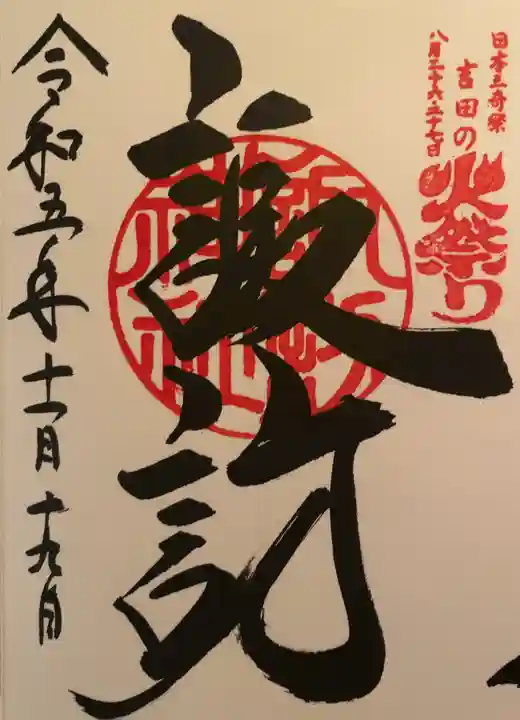 日本三奇祭
吉田の
火祭り
八月二十六・二十七日
諏訪
令和五年十一月十九日